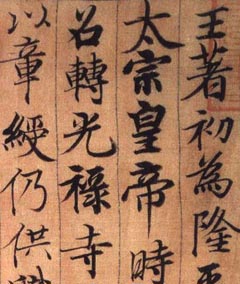 王著初為隆平
太宗皇帝時
召轉光祿寺
以章綬仍供職